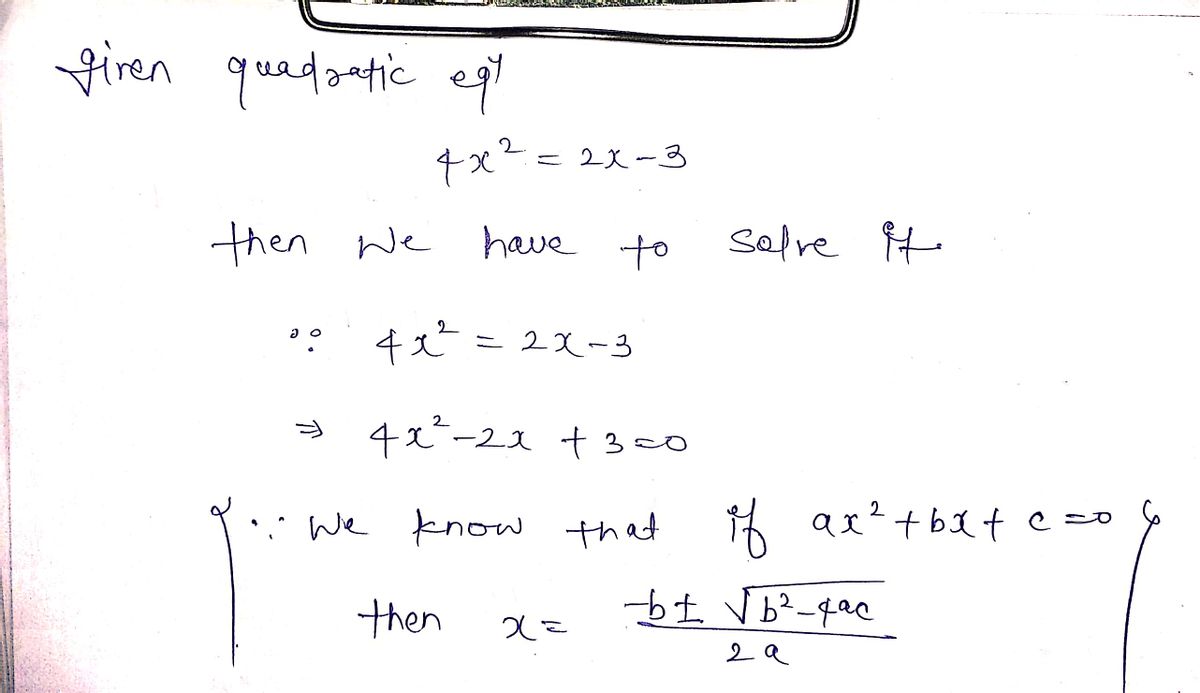 Given quadratic eqⁿ
4x² = 2x-3
then we have to solve it
∵ 4x² = 2x-3
⇒ 4x²-2x + 3=0
{∵ We know that if ax²+bx+ c =0
then x = -b± √b²-4ac / 2a }